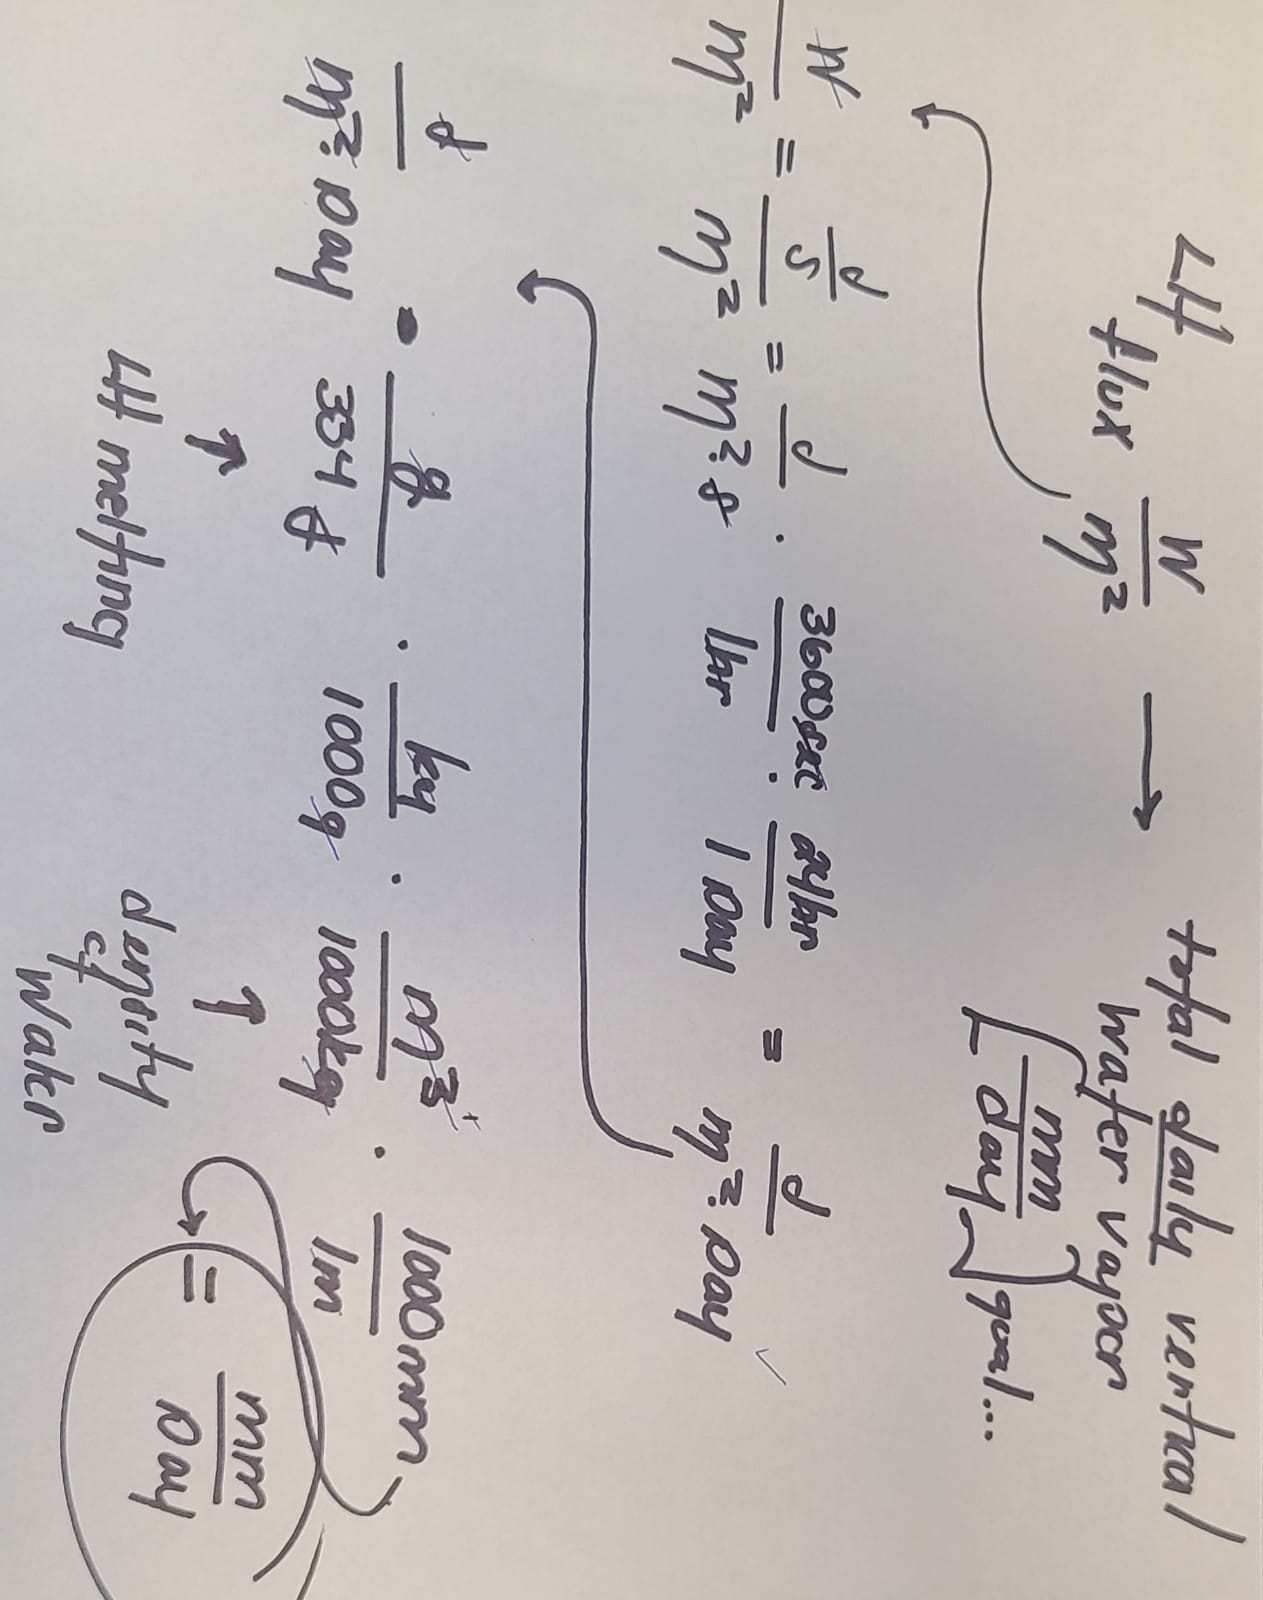 LH flux W/m² → total daily vertical
water vapor
[mm/day] goal...
W/m² = J/s/m² = J/m²·s · 3600sec/1hr · 24hr/1 Day = J/m²·Day ✓
J/m²·Day · g/334 J · kg/1000g · m³/1000kg · 1000mm/1m
= mm/Day
↑ ↑
LH melting density
of
Water